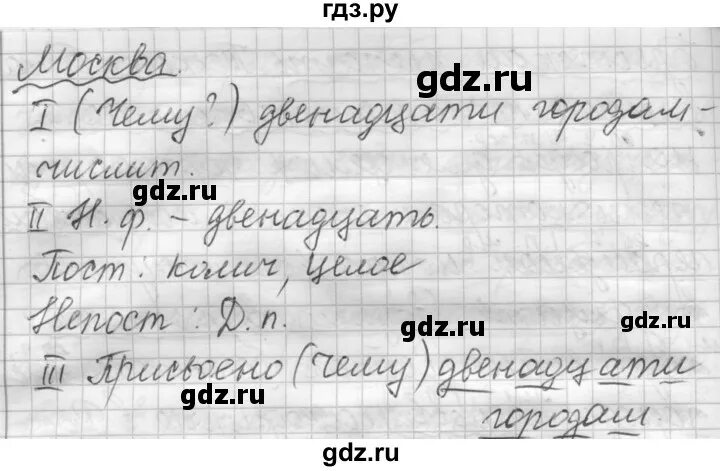 гдз.ру
Москва.
gdz.ru
I (Чему?) двенадцати городам -
числит.
gdz.ru
II Н. ф. – двенадцать.
Пост: колич, целое
Непост: Д. п.
gdz.ru
gdz.ru
III Присвоено (чему) двенадцати
gdz.ru
городам
gdz.ru